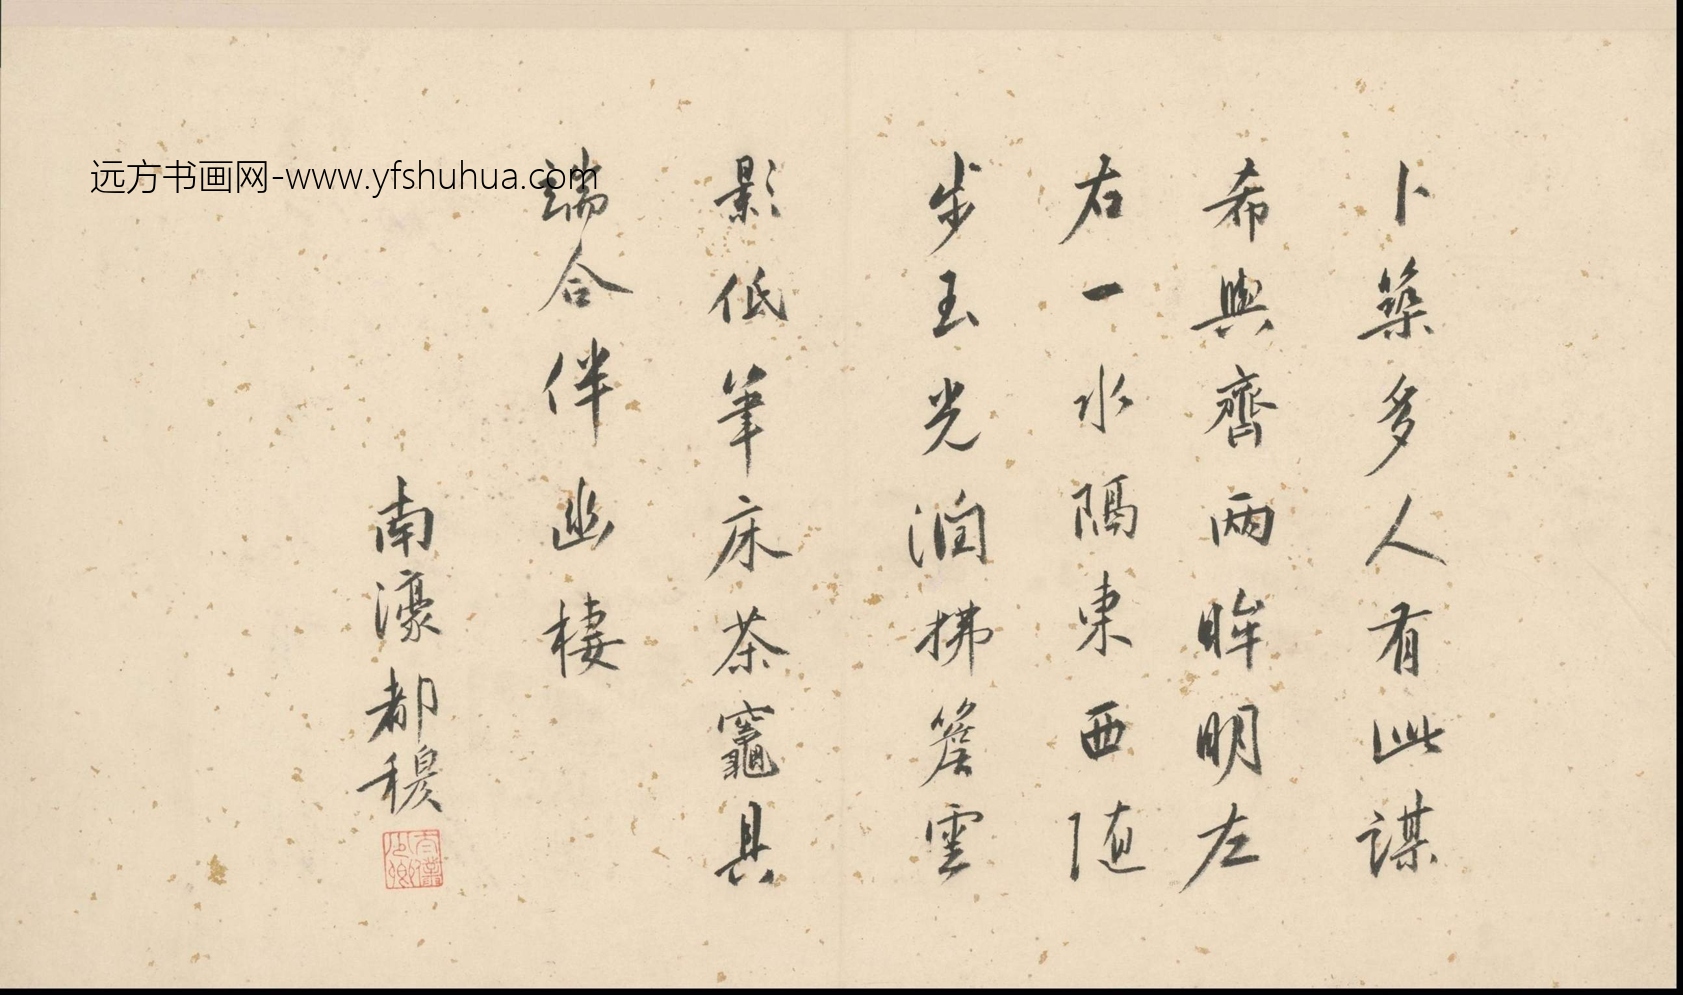 卜築多人有此謀
希與齊兩眸明左
右一水隔東西随
步玉光潤拂簷雲
影低筆床茶竈具
端合伴幽棲
南濠都穆
远方书画网-www.yfshuhua.com